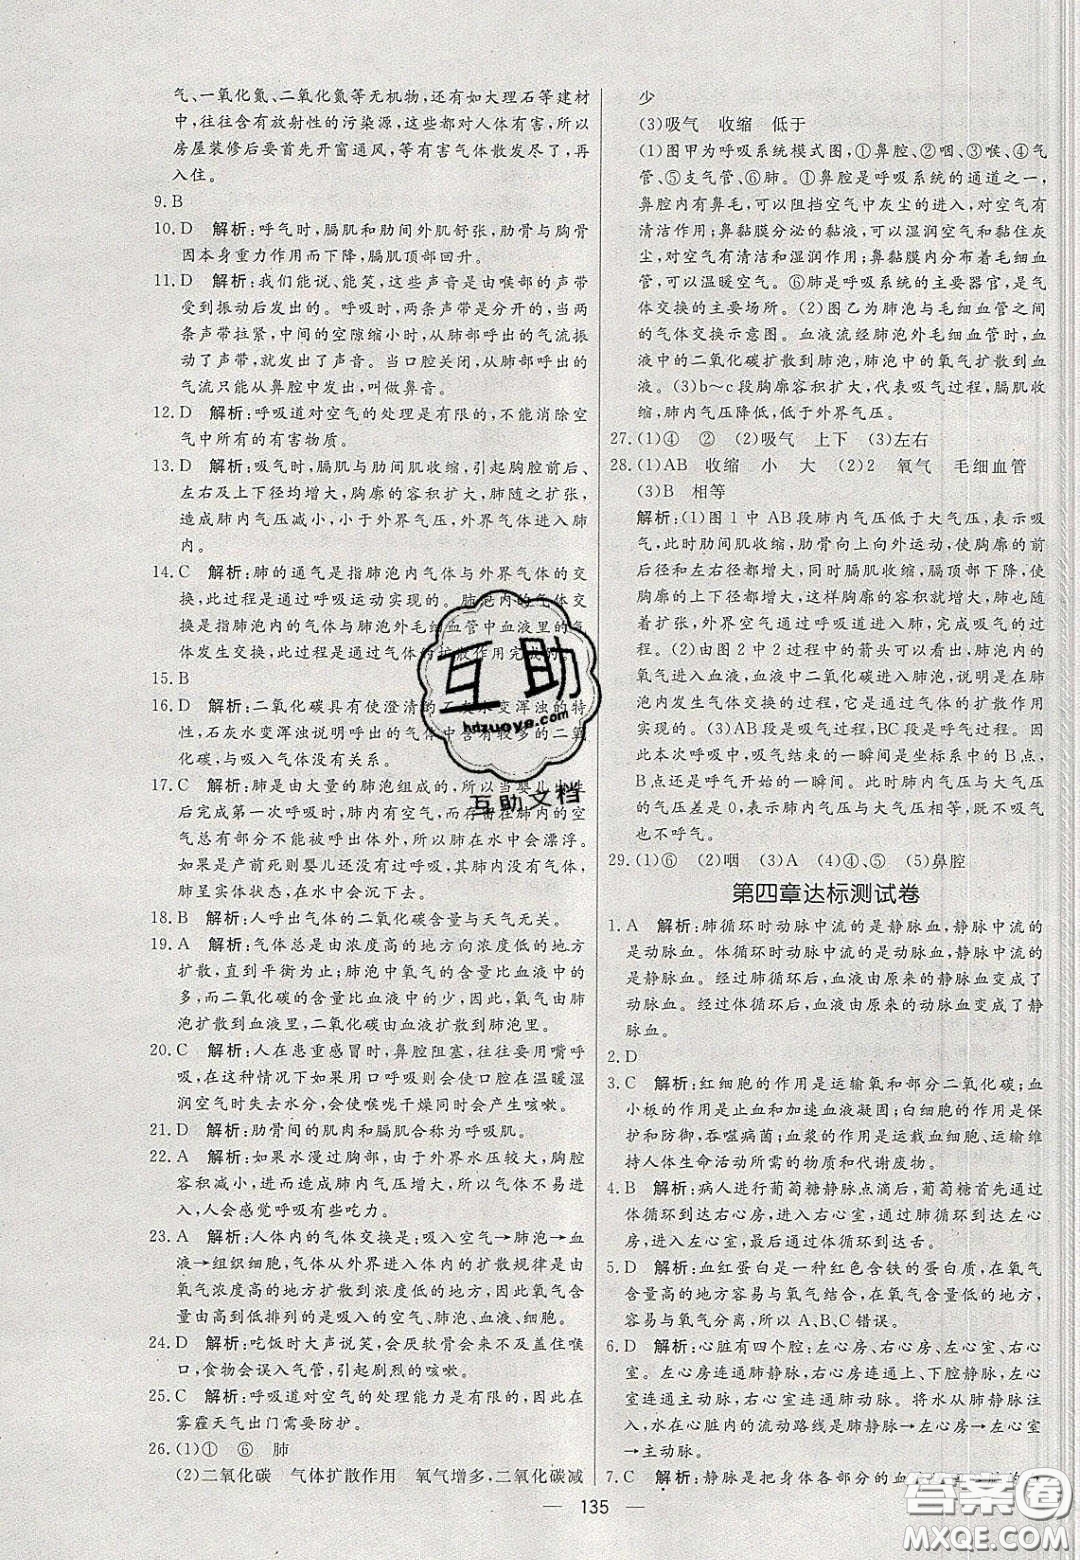 气、一氧化氮、二氧化氮等无机物,还有如大理石等建材
中,往往含有放射性的污染源,这些都对人体有害,所以
房屋装修后要首先开窗通风,等有害气体散发尽了,再
入住。
9.B
10.D 解析:呼气时,膈肌和肋间外肌舒张,肋骨与胸骨
因本身重力作用而下降,膈肌顶部回升。
11.D 解析:我们能说、能笑,这些声音是由喉部的声带
受到振动后发出的。呼吸时,两条声带是分开的。当两
条声带拉紧,中间的空隙缩小时,从肺部呼出的气流振
动了声带,就发出了声音。当口腔关闭,从肺部呼出的
气流只能从鼻腔中发出,叫做鼻音。
12.D 解析:呼吸道对空气的处理是有限的,不能消除空
气中所有的有害物质。
13.D 解析:吸气时,膈肌与肋间肌收缩,引起胸腔前后、
左右及上下径均增大,胸廓的容积扩大,肺随之扩张,
造成肺内气压减小,小于外界气压,外界气体进入肺
内。
14.C 解析:肺的通气是指肺泡内气体与外界气体的交
换,此过程是通过呼吸运动实现的。肺泡内的气体交
换是指肺泡内的气体与肺泡外毛细血管中血液里的气
体发生交换,此过程是通过气体的扩散作用完成的。
15.B
16.D 解析:二氧化碳具有使澄清的石灰水变浑浊的特
性,石灰水变浑浊说明呼出的气体中含有较多的二氧
化碳,与吸入气体没有关系。
17.C 解析:肺是由大量的肺泡组成的,所以当婴儿出生
后完成第一次呼吸时,肺内有空气,而存在在肺内的空
气总有部分不能被呼出体外,所以肺在水中会漂浮。
如果是产前死则婴儿还没有过呼吸,其肺内没有气体,
肺呈实体状态,在水中会沉下去。
18.B 解析:人呼出气体的二氧化碳含量与天气无关。
19.A 解析:气体总是由浓度高的地方向浓度低的地方
扩散,直到平衡为止;肺泡中氧气的含量比血液中的
多,而二氧化碳的含量比血液中的少,因此,氧气由肺
泡扩散到血液里,二氧化碳由血液扩散到肺泡里。
20.C 解析:人在患重感冒时,鼻腔阻塞,往往要用嘴呼
吸,在这种情况下如果用口呼吸则会使口腔在温暖湿
润空气时失去水分,使喉咙干燥同时会产生咳嗽。
21.D 解析:肋骨间的肌肉和膈肌合称为呼吸肌。
22.A 解析:如果水漫过胸部,由于外界水压较大,胸腔
容积缩小,导致肺内气压增大,所以气体不易进
入,人会感觉呼吸有些吃力。
23.A 解析:人体内的气体交换是:吸入空气→肺泡→血
液→组织细胞,气体从外界进入体内的扩散规律是由
氧气浓度高的地方扩散到浓度低的地方,因此氧气含
量由高到低排列的是吸入的空气、肺泡、血液、细胞。
24.D 解析:吃饭时大声说笑,会厌软骨会来不及盖住喉
口,食物会误入气管,引起剧烈的咳嗽。
25.C 解析:呼吸道对空气的处理能力是有限的,因此在
雾霾天气出门需要防护。
26.(1)① ⑥ 肺
(2)二氧化碳 气体扩散作用 氧气增多,二氧化碳减
少
(3)吸气 收缩 低于
(1)图甲为呼吸系统模式图,①鼻腔、②咽、③喉、④气
管、⑤支气管、⑥肺。①鼻腔是呼吸系统的通道之一,
鼻腔内有鼻毛,可以阻挡空气中灰尘的进入,对空气有
清洁作用;鼻黏膜分泌的黏液,可以湿润空气和黏住灰
尘,对空气有清洁和湿润作用;鼻黏膜内有毛细血管,
可以温暖空气。⑥肺是呼吸系统的主要器官,是气
体交换的主要场所。(2)图乙为肺泡与毛细血管之间
的气体交换示意图。血液流经肺泡外毛细血管时,血
液中的二氧化碳扩散到肺泡,肺泡中的氧气扩散到血
液。(3)b~c段胸廓容积扩大,代表吸气过程,膈肌收
缩,肺内气压降低,低于外界气压。
27.(1)④ ② (2)吸气 上下 (3)左右
28.(1)AB 收缩 小 大 (2)2 氧气 毛细血管
(3)B 相等
解析:(1)图1中AB段肺内气压低于大气压,表示吸
气,此时肋间肌收缩,肋骨向上向外运动,使胸廓的前
后径和左右径都增大,同时膈肌收缩,膈顶部下降,使胸
廓的上下径增大,这样胸廓的容积就增大,肺也随
着扩张,外界空气通过呼吸道进入肺,完成吸气的过
程。(2)由图2中2过程中的箭头可以看出,肺泡中的
氧气进入血液,血液中二氧化碳进入肺泡,说明是在肺
泡内发生气体交换的过程,它是通过气体的扩散作用
实现的。(3)AB段是吸气过程,BC段是呼气过程。因
此本次呼吸中,吸气结束的一瞬间是坐标系中的B点,
B点还是呼气开始的一瞬间。此时肺内气压与大气压
的气压差是0,表示肺内气压与大气压相等,既不吸气
也不呼气。
29.(1)⑥ (2)咽 (3)A (4)④、⑤ (5)鼻腔
第四章达标测试卷
1.A 解析:肺循环时动脉中流的是静脉血,静脉中流的
是动脉血。体循环时动脉中流的是动脉血,静脉中流的
是静脉血。经过肺循环后,血液由原来的静脉血变成了
动脉血。经过体循环后,血液由原来的动脉血变成了静
脉血。
2.D
3.C 解析:红细胞的作用是运输氧和部分二氧化碳;血
小板的作用是止血和加速血液凝固;白细胞的作用是保
护和防御,吞噬病菌;血浆的作用是运载血细胞、运输维
持人体生命活动所需的物质和代谢废物。
4.B 解析:病人进行葡萄糖静脉点滴后,葡萄糖首先通过
体循环到达右心房,进入右心室,通过肺循环到达左心
房,进入左心室,最后通过体循环到达舌。
5.D 解析:血红蛋白是一种红色含铁的蛋白质,在氧气
浓度高的地方容易与氧气结合,在氧气浓度低的地方容
易与氧气分离,所以A、B、C错误。
6.D 解析:心脏有四个腔:左心房、右心房、左心室、右心
室。左心房连通肺静脉,右心房连通上、下腔静脉,左心
室连通主动脉,右心室连通肺动脉。将水从肺静脉注
入,水在心脏内的流动路线是肺静脉→左心房→左心室
→主动脉。
7.C 解析:静脉是把身体各部分的血
135
互助
hdzuoye.com
互助文档
答案圈
MXQE.COM